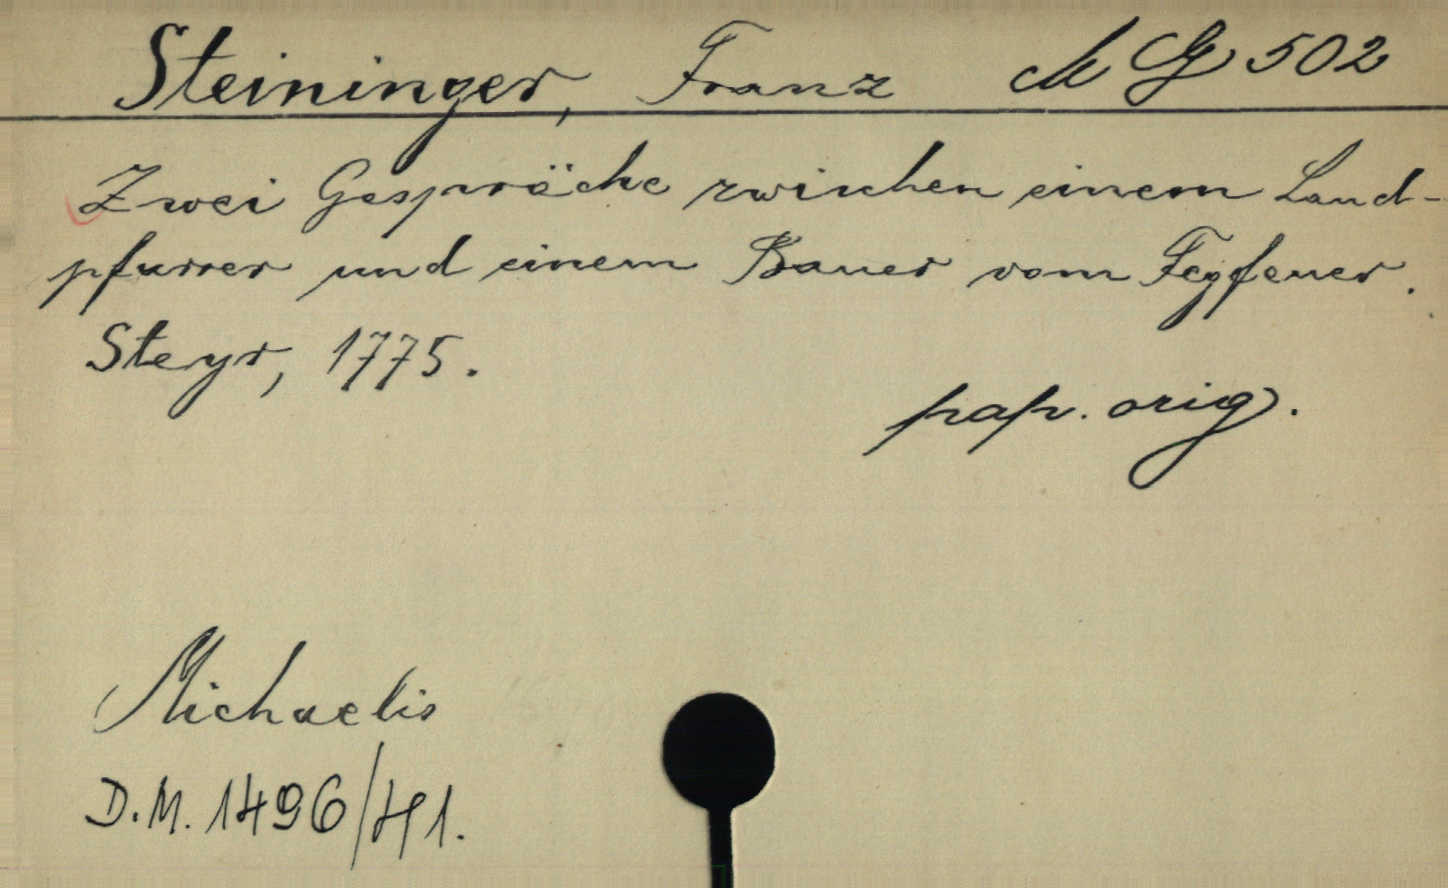 Steininger, Franz ch G 502
Zwei Gespräche zwischen einem Land-
pfarrer und einem Bauer vom Fegfeuer.
Steyr, 1775.
pap. orig.
Michaelis
D.M. 1496/41.